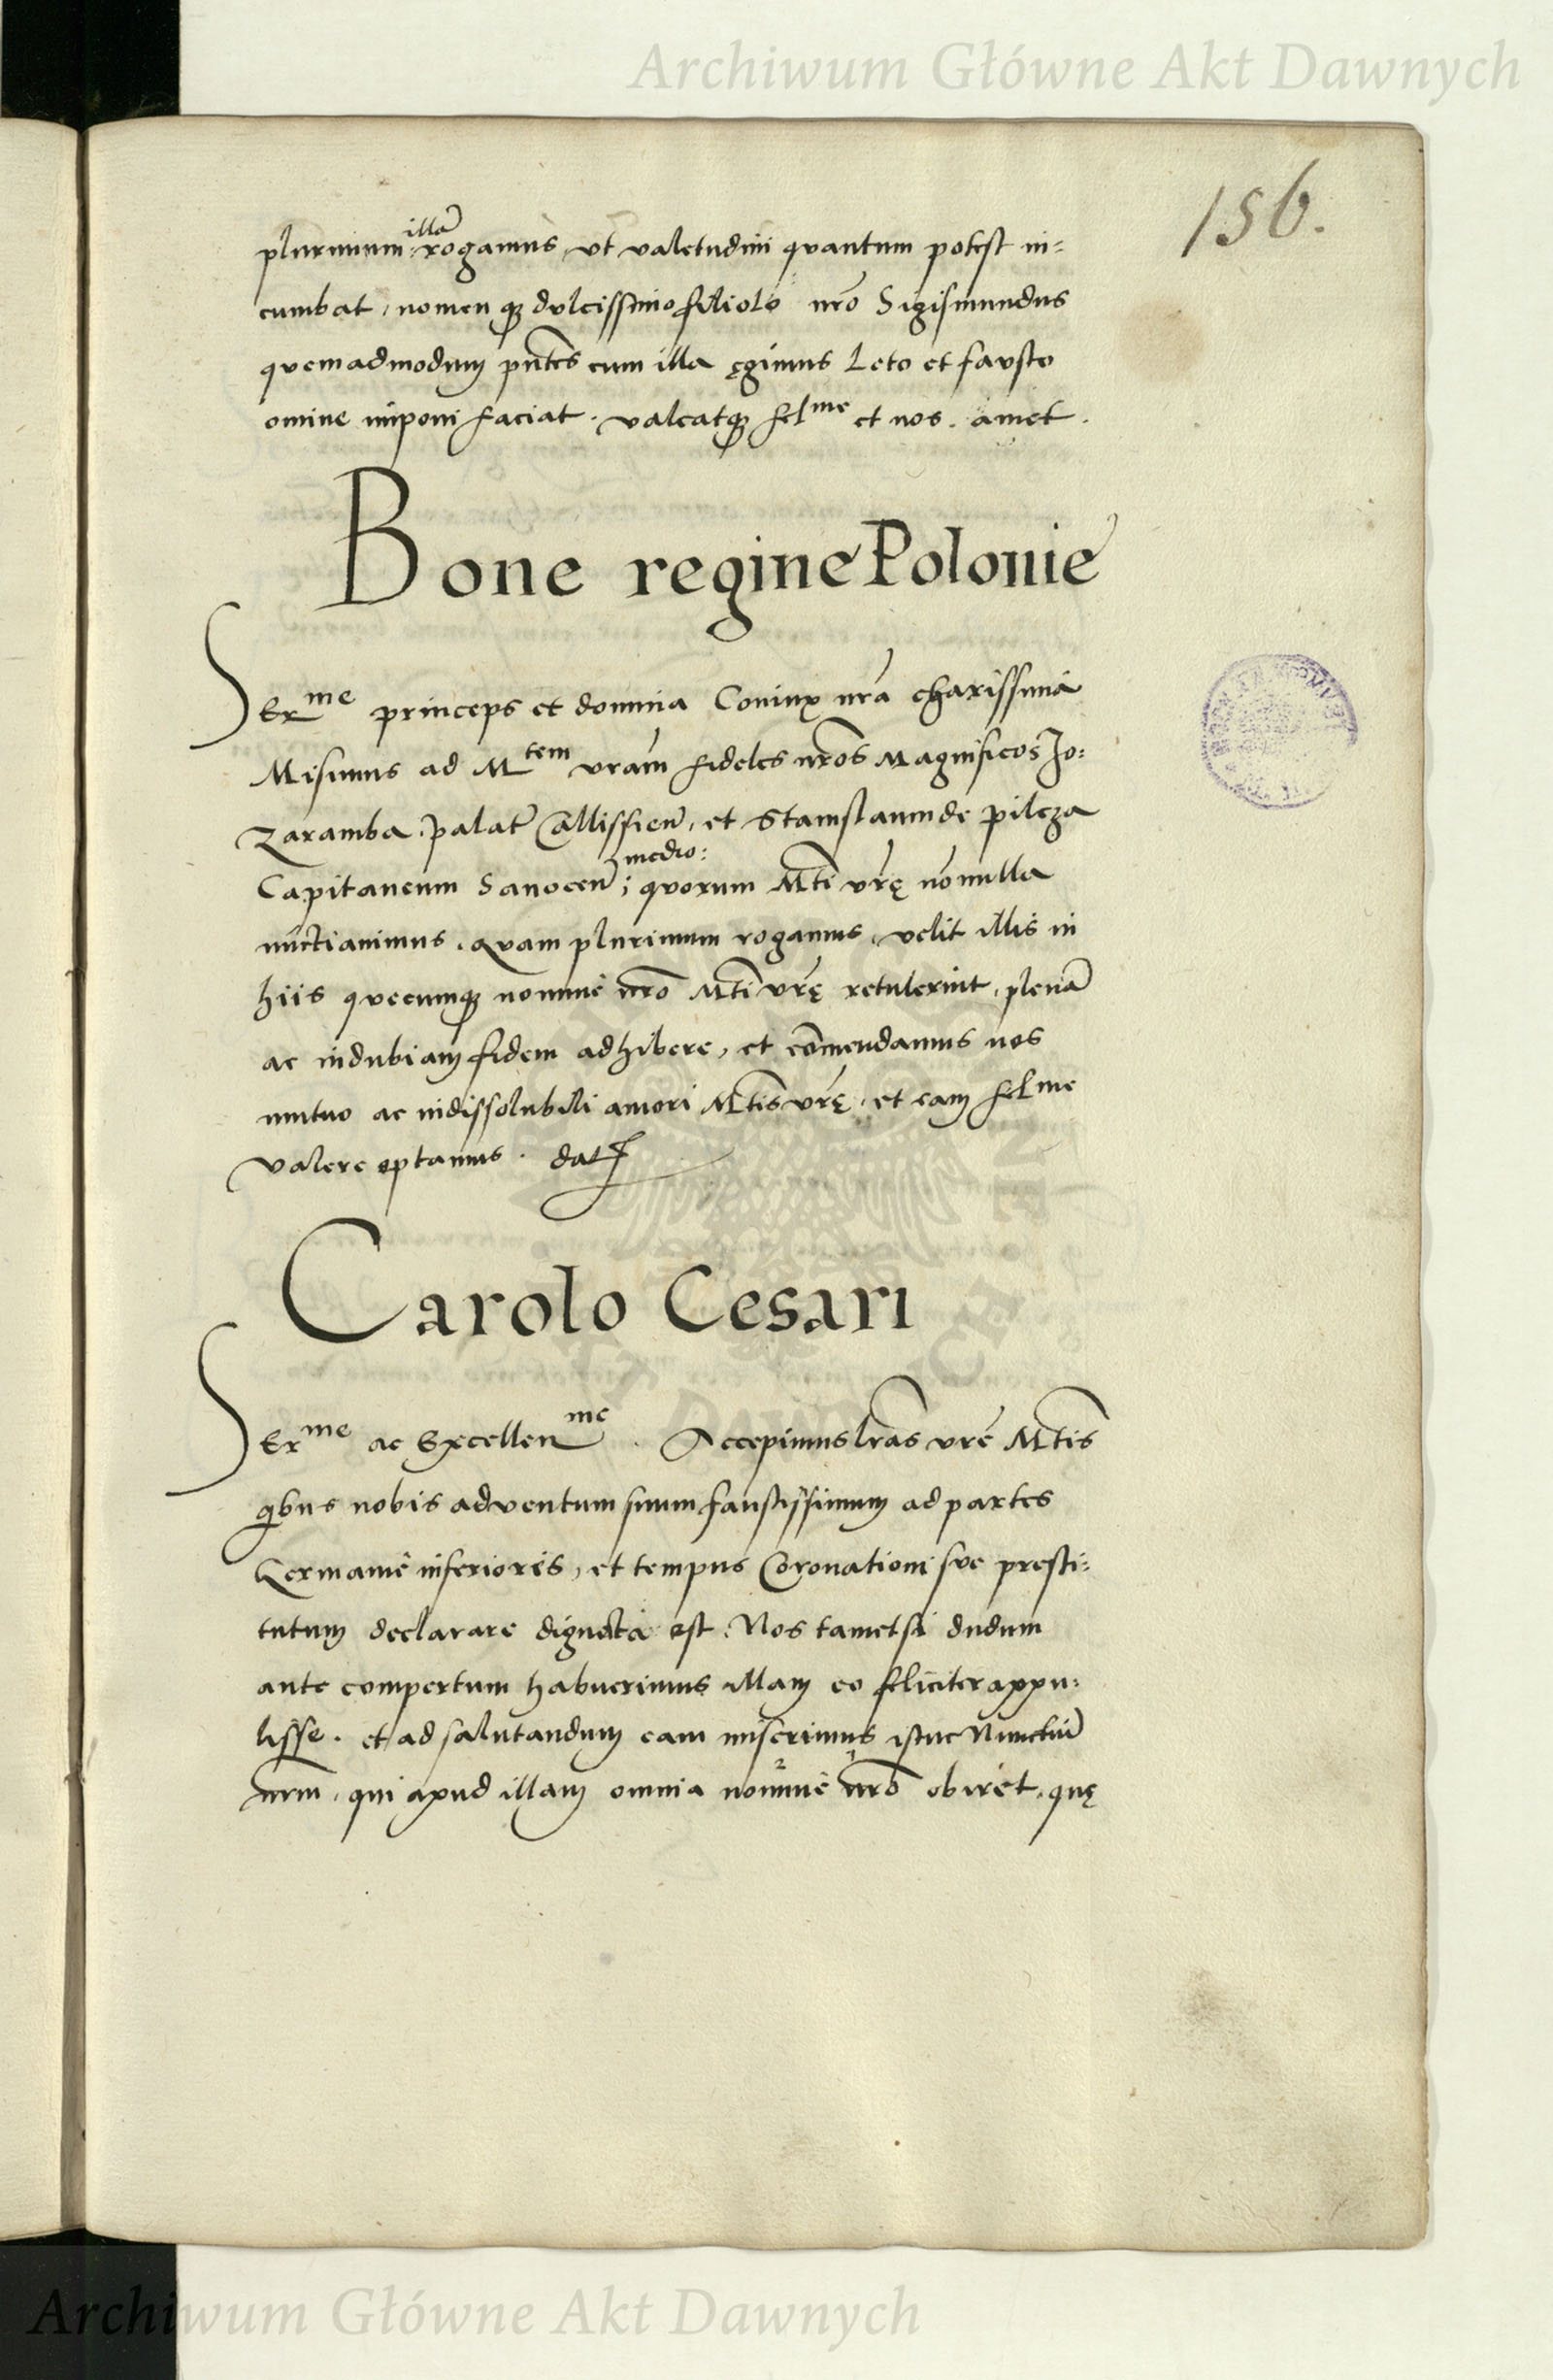 Archiwum Główne Akt Dawnych
156.
illa᷈
plurimum rogamus, ut valetudini quantum potest in=
cumbat, nomen qȝ dulcissimo filiolo nr̃o Sigismundus
quemadmodum pñtes cum illa ęgimus leto et fausto
omine imponi faciat. valeatqȝ felme et nos. amet.
Bone regine Polonie
Serme princeps et domina Coniux nr̃a charissima
Misimus ad Mtem vram̃ fideles nr̃os Magnificos Jo:
Zaramba palat̃ Callissien̄, et Stanislaum de pilcza
medio:
Capitaneum Sanocen̄; quorum Mt̃i vr̃ę nõnulla
nũctiavimus. quam plurimum rogamus, velit illis in
hiis quecumqȝ nomine nr̃o Mt̃i vr̃ę retulerint, plenã
ac indubiam fidem adhibere, et cõmendamus nos
mutuo ac indissolubili amori Mt̃is vr̃ę, et eam felme
valere optamus. dat
Carolo Cesari
Serme ac Excellenme. Accepimus lr̃as vr̃e Mt̃is
qibus nobis adventum suum faustissimum ad partes
Germanie inferioris, et tempus Coronationi sue presti:
tutum declarare dignata est. Nos tametsi dudum
ante compertum habuerimus illam eo feliciter appu:
lisse. et ad salutandum eam miserimus istuc Nunctiũ
nr̃m, qui apud illam omnia nomine nr̃o obiret, quę
Archiwum Główne Akt Dawnych